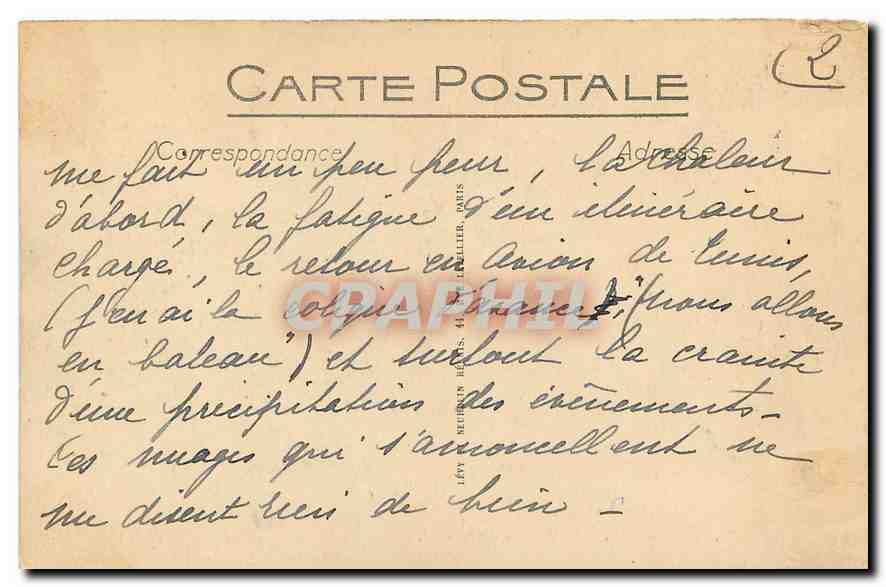 2
CARTE POSTALE
Correspondance
Adresse
me fait un peu peur, la chaleur
d'abord, la fatigue d'un itinéraire
chargé, le retour en avion de Tunis,
(j'en ai la colique d'avance, "(nous allons
en bateau") et surtout la crainte
d'une précipitations des évènements_
Ces nuages qui s'amoncellent ne
me disent rien de bien _
LÉVY NEURDEIN RÉUNIS, 44 LETELLIER, PARIS
CRAPHIL